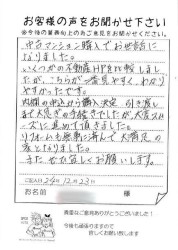 お客様の声をお聞かせ下さい
※今後の業務向上の為ご意見をお聞かせください。
中古マンション購入でお世話に
なりました。
いくつかの不動産HPを比較しまし
たが、こちらが一番見やすく、わかり
やすかったです。
内覧の申込から購入決定、引き渡し
まで大急ぎの手続きでしたが、大変スム
ーズに進めて頂きました。
リフォームも無事に済んで大満足の
家となりました。
またぜひ宜しくお願いします。
ご記入日 24年 12月 23日
お名前 様
貴重なご意見ありがとうございました!
今後も頑張りますので
宜しくお願い致します